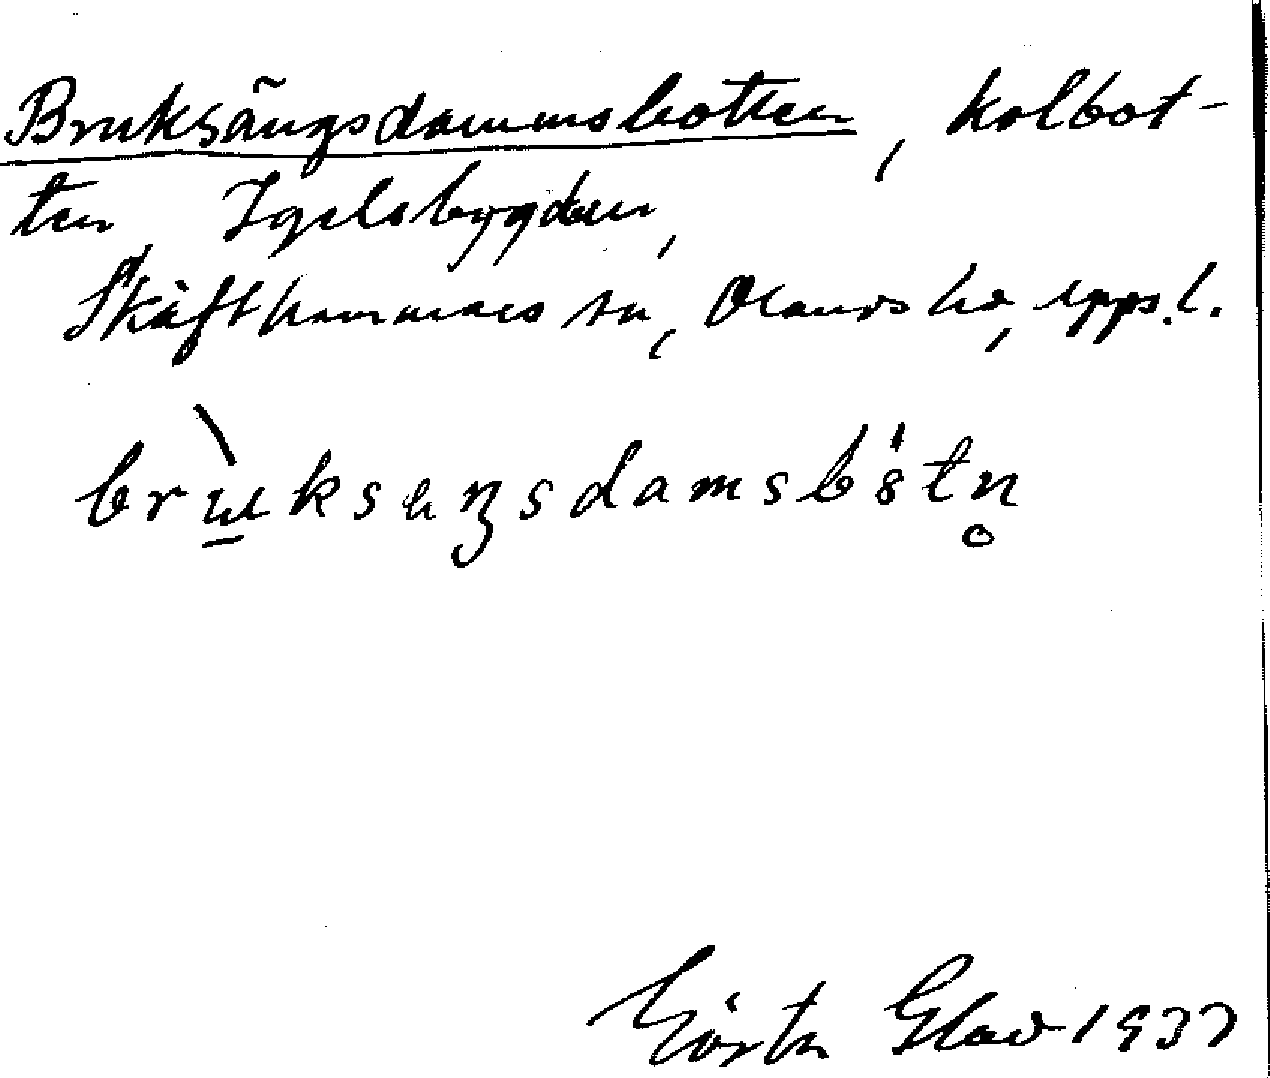 Bruksängsdammsbotten, kolbot-
ten Igelsbygden,
Skäfthammars sn, Olands hd, Upps.l.
brùksaŋsdamsbȯtn̥
Gösta Glad 1937